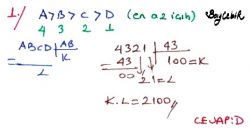 1./ A > B > C > D (en az için)
4 3 2 1
ABCD | AB
K
L
4321 | 43
43 100 = K
00 21 = L
K.L = 2100
CEVAP: D